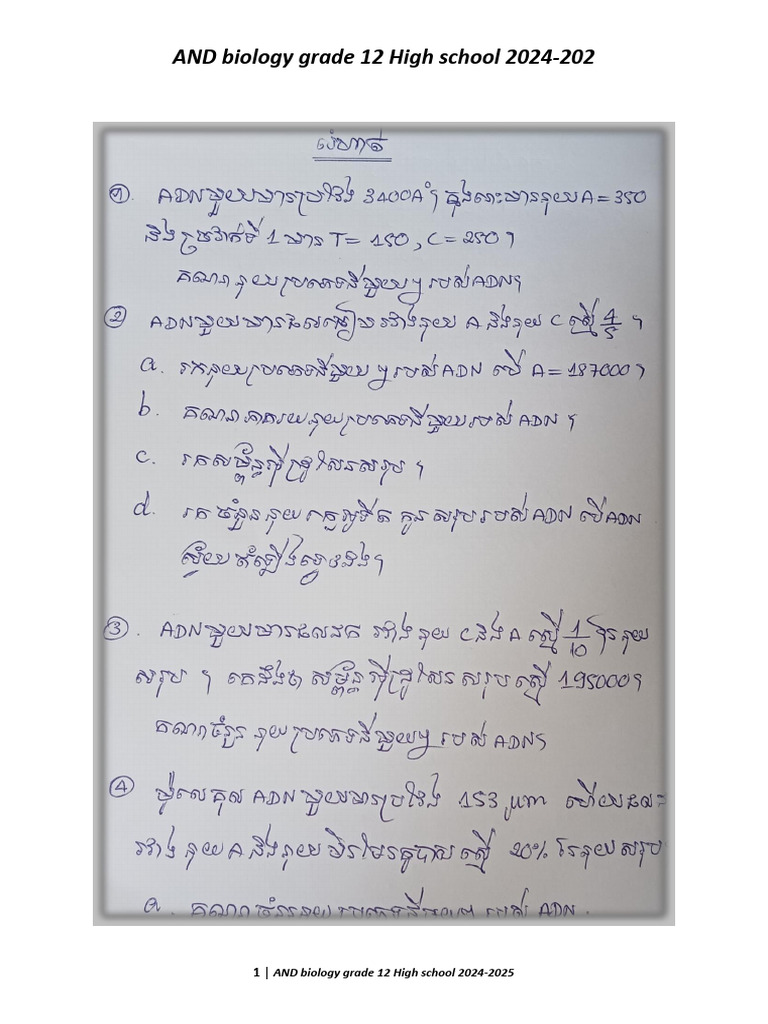 AND biology grade 12 High school 2024-202
លំហាត់
១. ADN មួយមានប្រវែង 3400A° ។ ក្នុងនោះមាននុយ A = 350
និងច្រវាក់ទី 1 មាន T = 150 , C = 250 ។
គណនានុយប្រភេទនីមួយៗ របស់ ADN ។
② ADN មួយមានផលធៀបរវាងនុយ A និងនុយ C ស្មើ 4/5 ។
a. រកនុយប្រភេទនីមួយៗ របស់ ADN បើ A = 187000 ។
b. គណនាភាគរយនុយប្រភេទនីមួយរបស់ ADN ។
c. រកសម្ព័ន្ធអ៊ីដ្រូសែនសរុប ។
d. រកចំនួននុយក្លេអូទីត កូនសរុបរបស់ ADN បើ ADN
ស្វ័យតំឡើងស្វាទវដង។
③. ADN មួយមានផលដក រវាងនុយ C និង A ស្មើ 1/10 នៃនុយ
សរុប ។ គេដឹងថា សម្ព័ន្ធអ៊ីដ្រូសែនសរុបស្មើ 195000 ។
គណនាចំនួន នុយប្រភេទនីមួយៗ របស់ ADN ។
④ ម៉ូលេគុល ADN មួយមានប្រវែង 153 µm ហើយផល
រវាង នុយ A និងនុយមិនមែនគូបាស ស្មើ 20% នៃនុយសរុប
a. គណនាចំនួននុយ ប្រភេទនីមួយៗ របស់ ADN .
1 | AND biology grade 12 High school 2024-2025